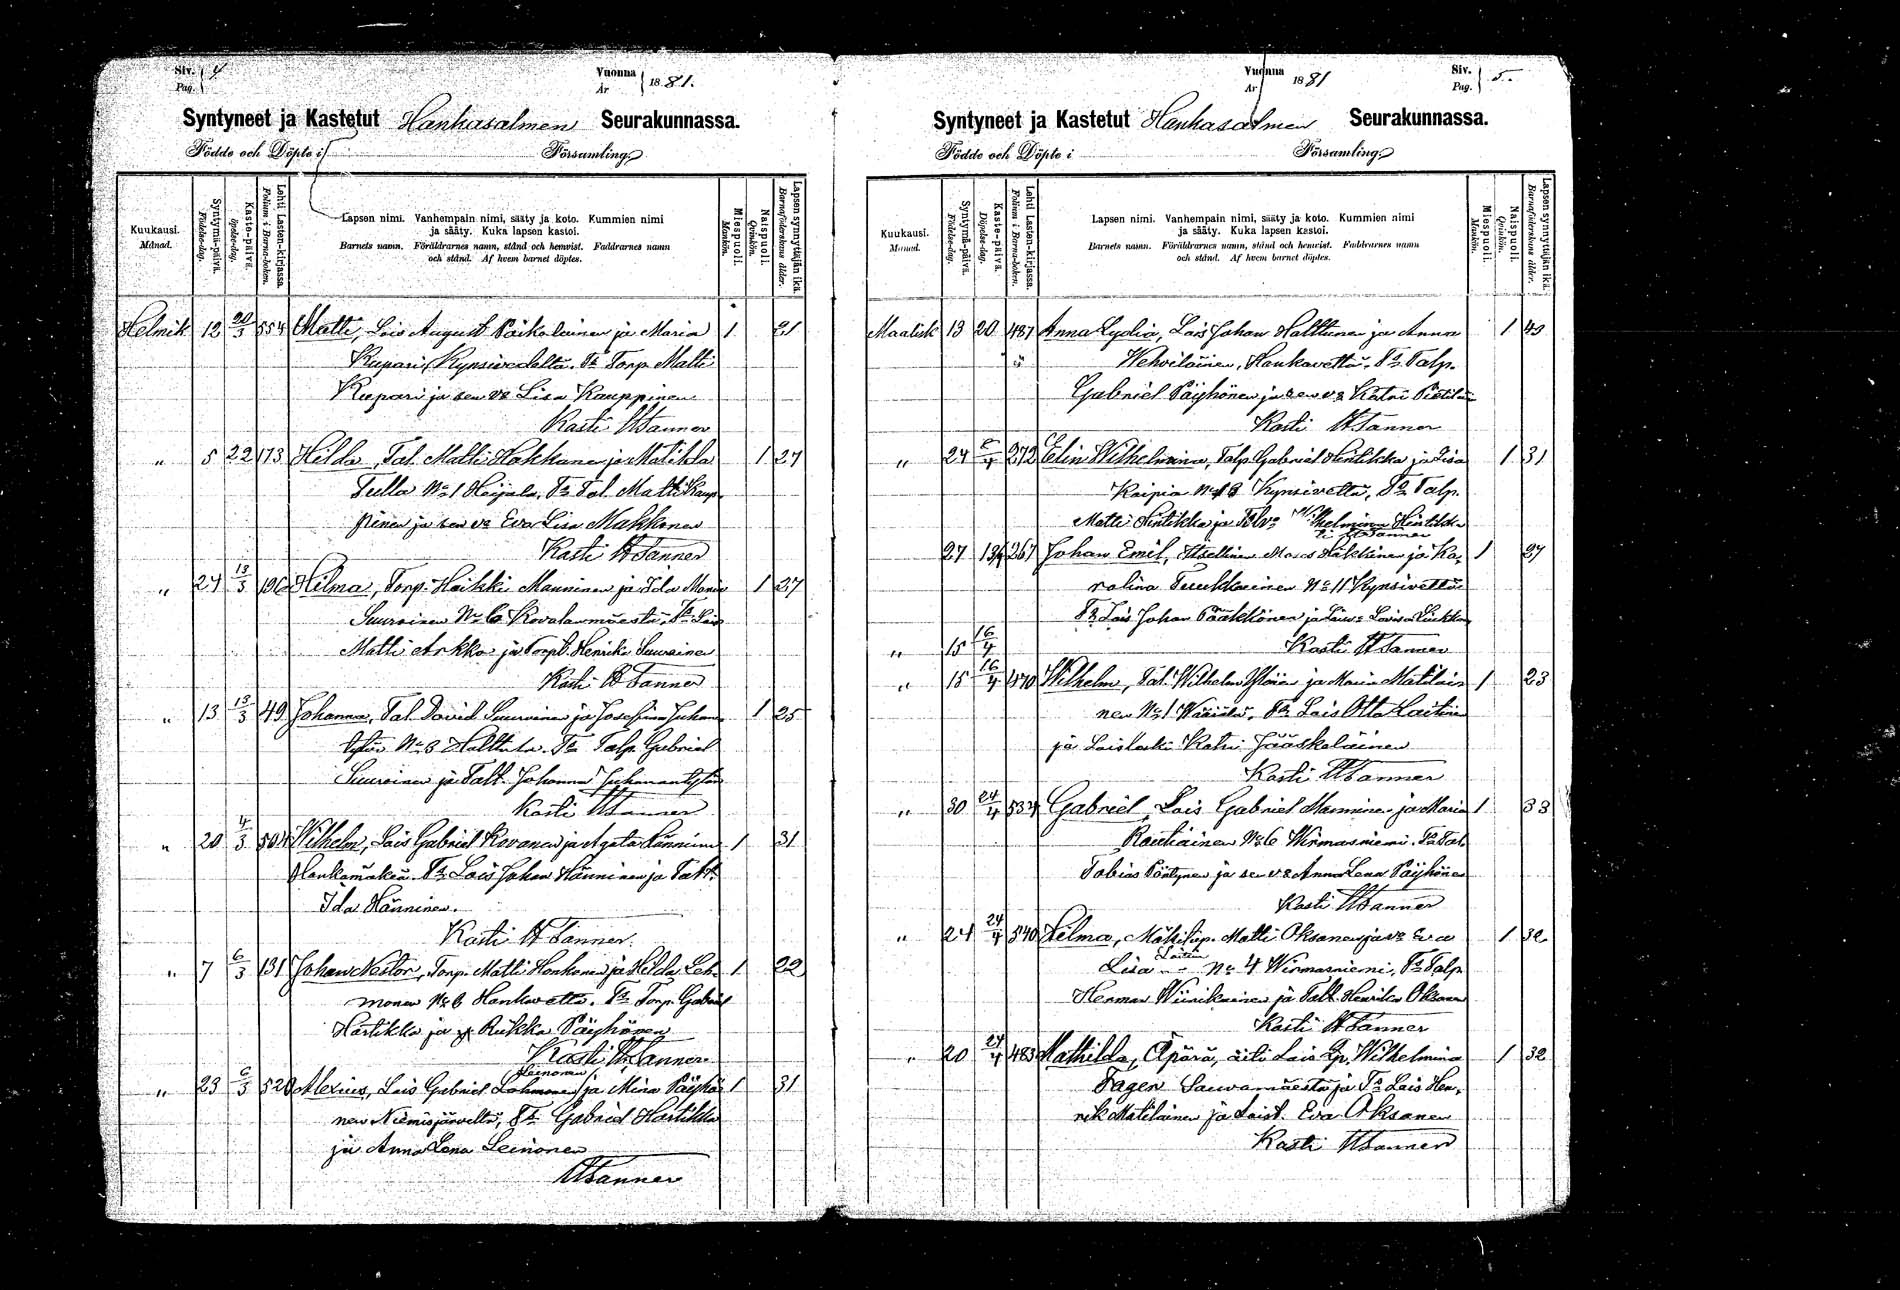 Siv. Pag. 4
Vuonna År 1881.
Syntyneet ja Kastetut Hankasalmen Seurakunnassa.
Födde och Döpte i Församling.
Kuukausi. Månad.
Syntymä-päivä. Födelse-dag.
Kaste-päivä. Döpelse-dag.
Lehti Lasten-kirjassa. Folium i Barna-boken.
Lapsen nimi. Vanhempain nimi, sääty ja koto. Kummien nimi
ja sääty. Kuka lapsen kastoi.
Barnets namn. Föräldrarnes namn, stånd och hemvist. Faddrarnes namn
och stånd. Af hvem barnet döptes.
Miespuoli. Mankön.
Naispuoli. Qvinkön.
Lapsen synnyttäjän ikä. Barnaföderskans ålder.
Helmik 12 20/3 554 Matti, Lois August Paikolainen ja Maria 1 21
Kupari, Kynsivedeltä. Ts Torp. Matti
Kupari ja sen vo Lisa Kauppinen
Kasti WTanner
" 5 22 173 Hilda, Tal. Matti Hakkana ja Matilda 1 27
Tulla No 1 Ts Tal. Matti Kaup-
pinen ja sen vo Eva Lisa Makkonen
Kasti WTanner
" 24 13/3 196 Hilma, Torp. Heikki Manninen ja Ida Maria 1 27
Suuroinen No 6 Kovalanmäestä, Ts Lois
Matti Arkko ja Henrika Suuroinen
Kasti WTanner
" 13 13/3 49 Johanna, Tal. David Suuroinen ja Josefina Juhan- 1 25
tytär No 3 Ts Talp. Gabriel
Suuroinen ja Talt. Johanna Juhanantytär
Kasti WTanner
" 20 4/3 504 Wilhelm, Lois Gabriel Kovanen ja Agata Hänninen 1 31
Hankamäken. Ts Lois Johan Hänninen ja Talt.
Ida Hänninen.
Kasti WTanner.
" 7 6/3 131 Johan Nestor, Torp. Matti Honkonen ja Hilda Leh- 1 22
monen No 6 Hankavettä. Ts Torp. Gabriel
Hartikka ja Riikka Päyhönen
Kasti WTanner.
Leinonen
" 23 6/3 520 Alexius, Lois Gabriel Lahmonen ja Mina Päyhö- 1 31
nen Niemisjärveltä, Ts Gabriel Hartikka
ja Anna Lena Leinonen
WTanner
Vuonna År 1881
Siv. Pag. 5.
Syntyneet ja Kastetut Hankasalmen Seurakunnassa.
Födde och Döpte i Församling.
Kuukausi. Månad.
Syntymä-päivä. Födelse-dag.
Kaste-päivä. Döpelse-dag.
Lehti Lasten-kirjassa. Folium i Barna-boken.
Lapsen nimi. Vanhempain nimi, sääty ja koto. Kummien nimi
ja sääty. Kuka lapsen kastoi.
Barnets namn. Föräldrarnes namn, stånd och hemvist. Faddrarnes namn
och stånd. Af hvem barnet döptes.
Miespuoli. Mankön.
Naispuoli. Qvinkön.
Lapsen synnyttäjän ikä. Barnaföderskans ålder.
Maalisk 13 20 487 Anna Lydia, Lois Johan Halttunen ja Anna 1 40
Wehviläinen, Hankavettä, Ts Talp.
Gabriel Päyhönen ja sen vo Katri
Kasti WTanner
" 24 272 Elin Wilhelmina, Talp. Gabriel Hintikka ja Lisa 1 31
Kaipia Kynsivettä, Ts Talp.
Matti Hintikka ja Wilhelmina Hintikka
WTanner
27 267 Johan Emil, Häkkinen ja Ka- 1 27
rolina No 11 Kynsivettä
Ts Lois Johan Pääkkönen ja
" 15 16/4 Kasti WTanner
" 15 16/4 470 Wilhelm, Tal. Wilhelm ja Maria Matilai- 1 23
nen No 1 Ts Lois Otto Laitinen
ja Katri Jääskeläinen
Kasti WTanner
" 30 24/4 534 Gabriel, Lois Gabriel Manninen ja Maria 1 33
Rautiainen No 6 Wirmasniemi. Ts Tal.
Tobias Pöntynen ja sen vo Anna Lena Päyhönen
Kasti WTanner
" 24 24/4 540 Hilma, Mäkitup. Matti Oksanen ja vo Eva 1 32
Laitin
Lisa No 4 Wirmasniemi, Ts Talp.
Herman Wiinikainen ja Talt. Henrika Oksanen
Kasti WTanner
" 20 24/4 483 Mathilda, Äpärä, äiti Lois Wilhelmina 1 32
Fagen Sauvamäestä ja Ts Lois Hen-
rik Matilainen ja Loist. Eva Oksanen
Kasti WTanner